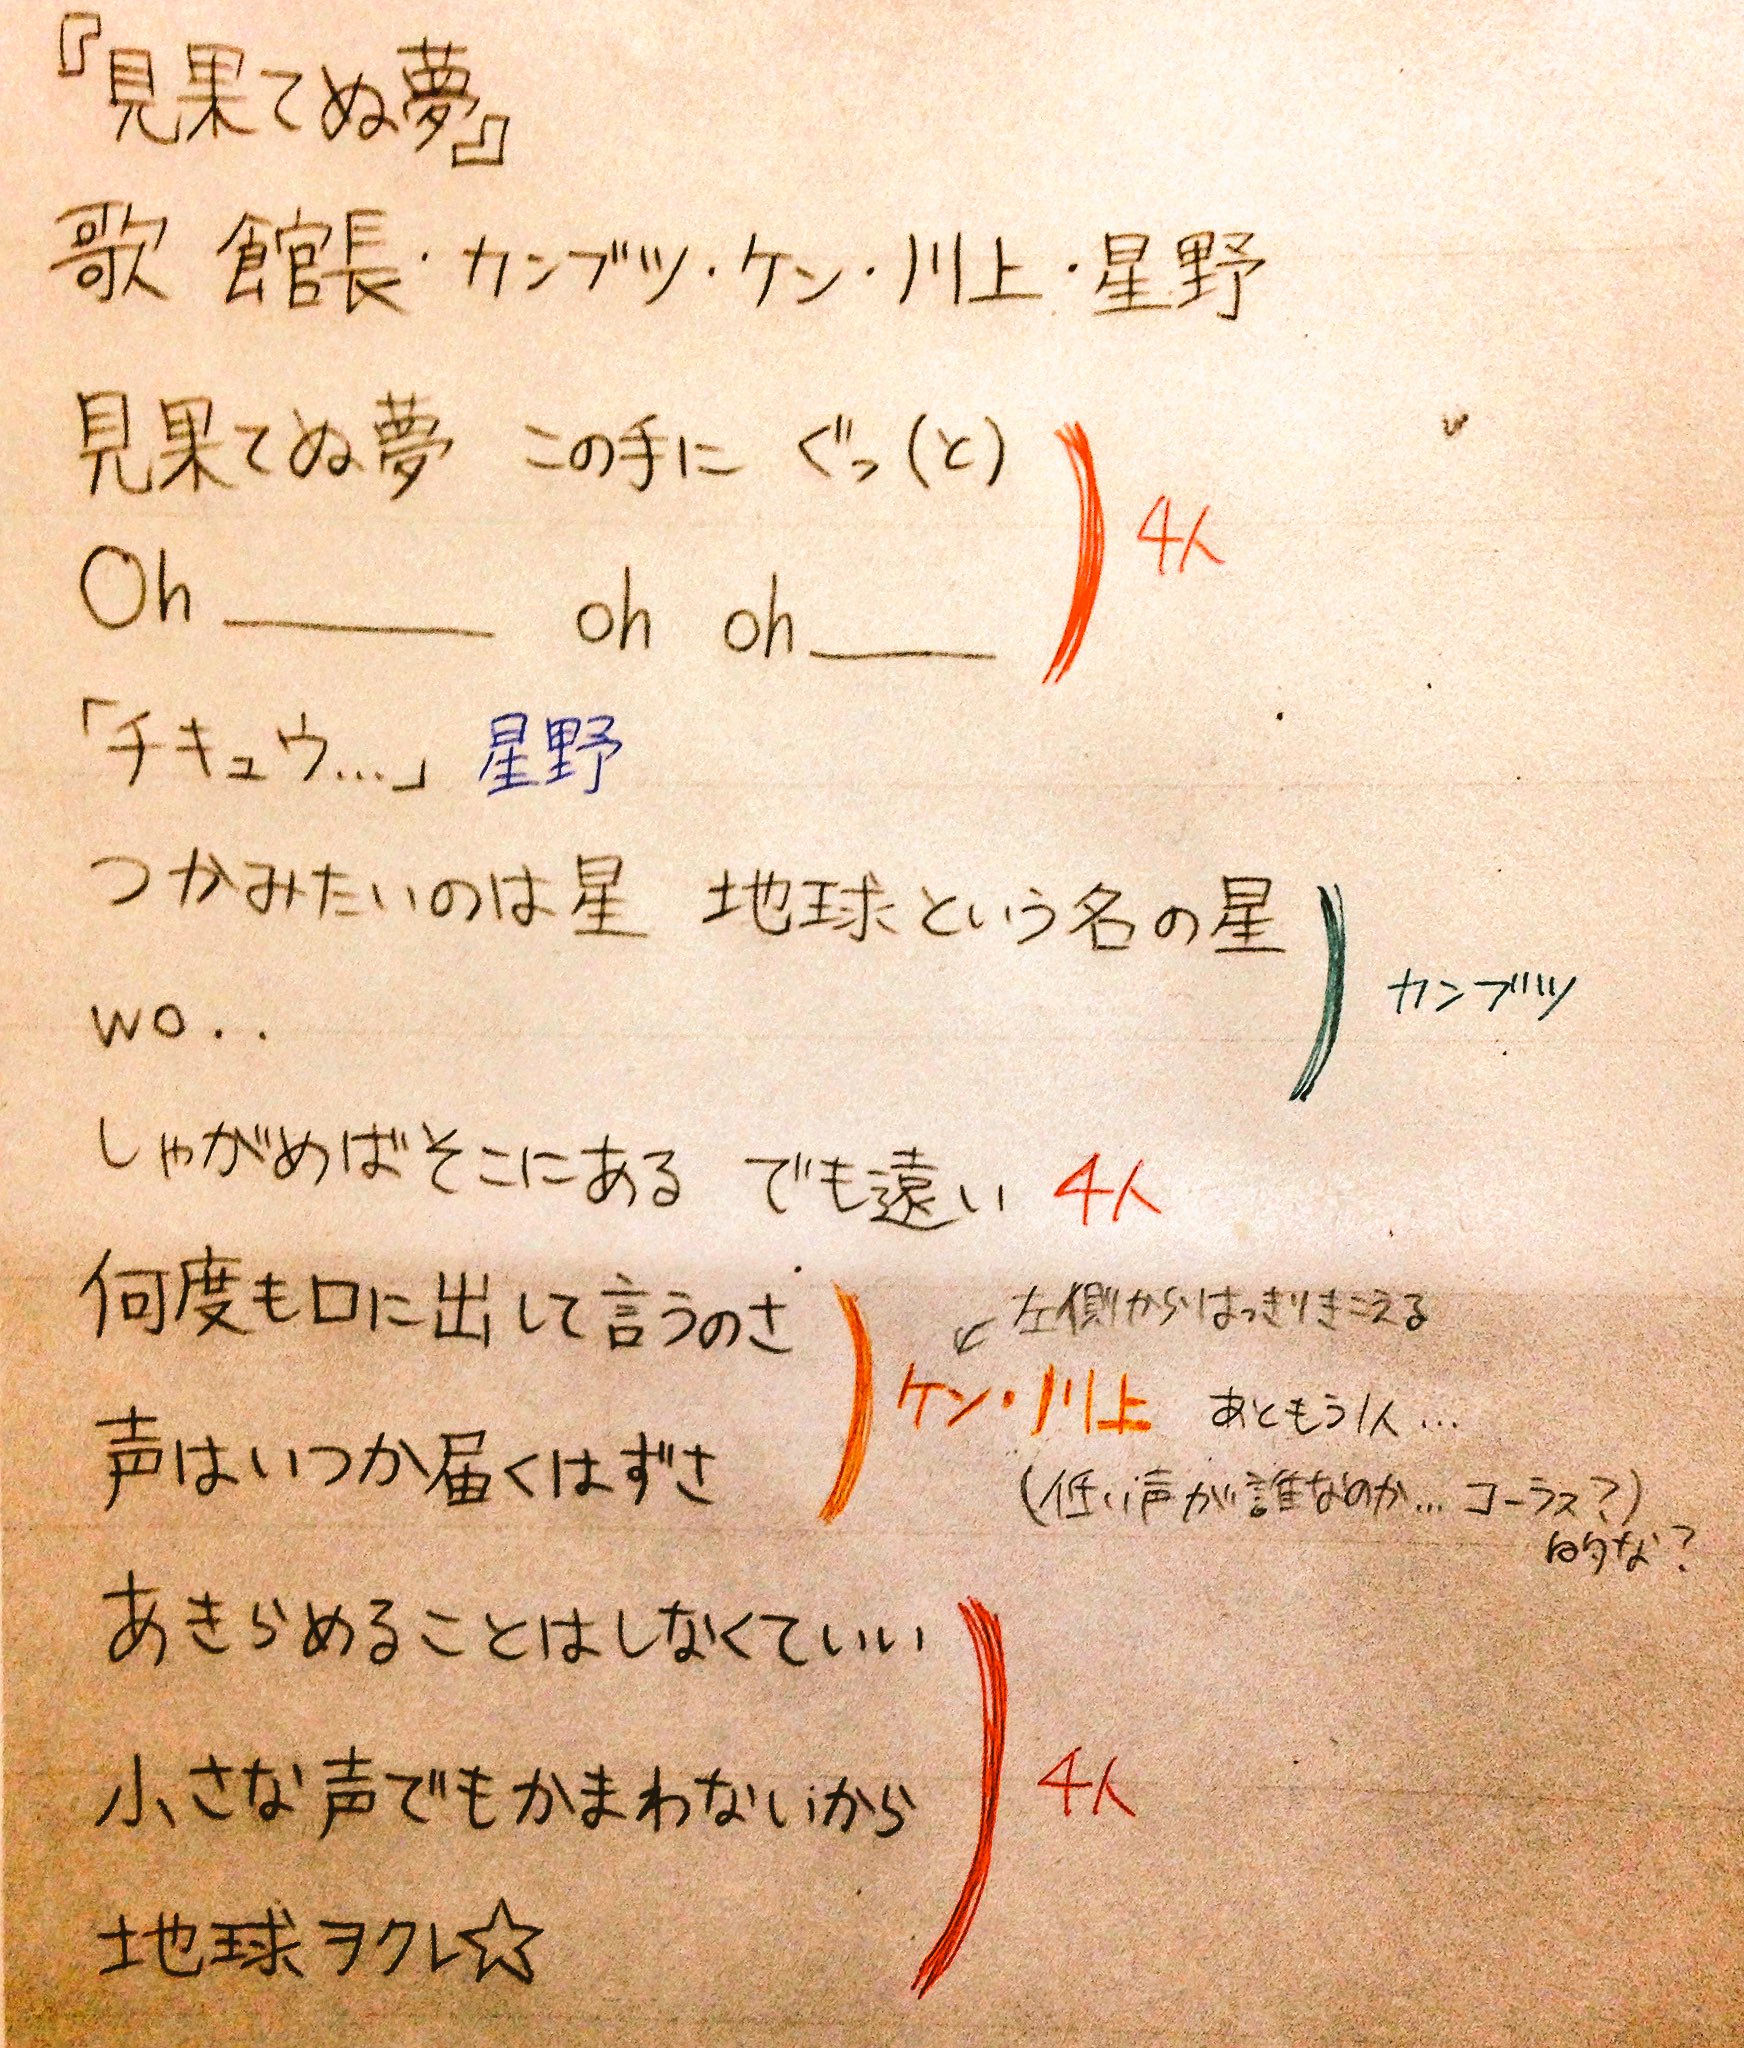 『見果てぬ夢』
歌 館長・カンブツ・ケン・川上・星野
見果てぬ夢 この手に ぐっ(と)
Oh ______ oh oh ____
4人
「チキュウ…」 星野
つかみたいのは星 地球という名の星
wo..
カンブツ
しゃがめばそこにある でも遠い 4人
何度も口に出して言うのさ
声はいつか届くはずさ
↙ 左側からはっきりきこえる
ケン・川上 あともう1人…
(低い声が誰なのか… コーラス?)
的な?
あきらめることはしなくていい
小さな声でもかまわないから
地球ヲクレ☆
4人